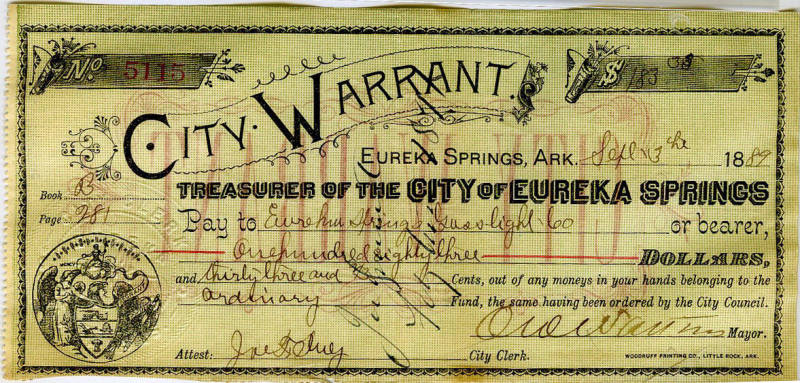 No. 5115
$ 183
CITY WARRANT.
EUREKA SPRINGS, ARK. Sept 3 1889
Book B
TREASURER OF THE CITY OF EUREKA SPRINGS
Page 281
Pay to Eureka Springs Gas light Co or bearer,
One hundred eighty three DOLLARS,
and thirty three and Cents, out of any moneys in your hands belonging to the
ordinary Fund, the same having been ordered by the City Council.
Mayor.
Attest: City Clerk.
WOODRUFF PRINTING CO., LITTLE ROCK, ARK.